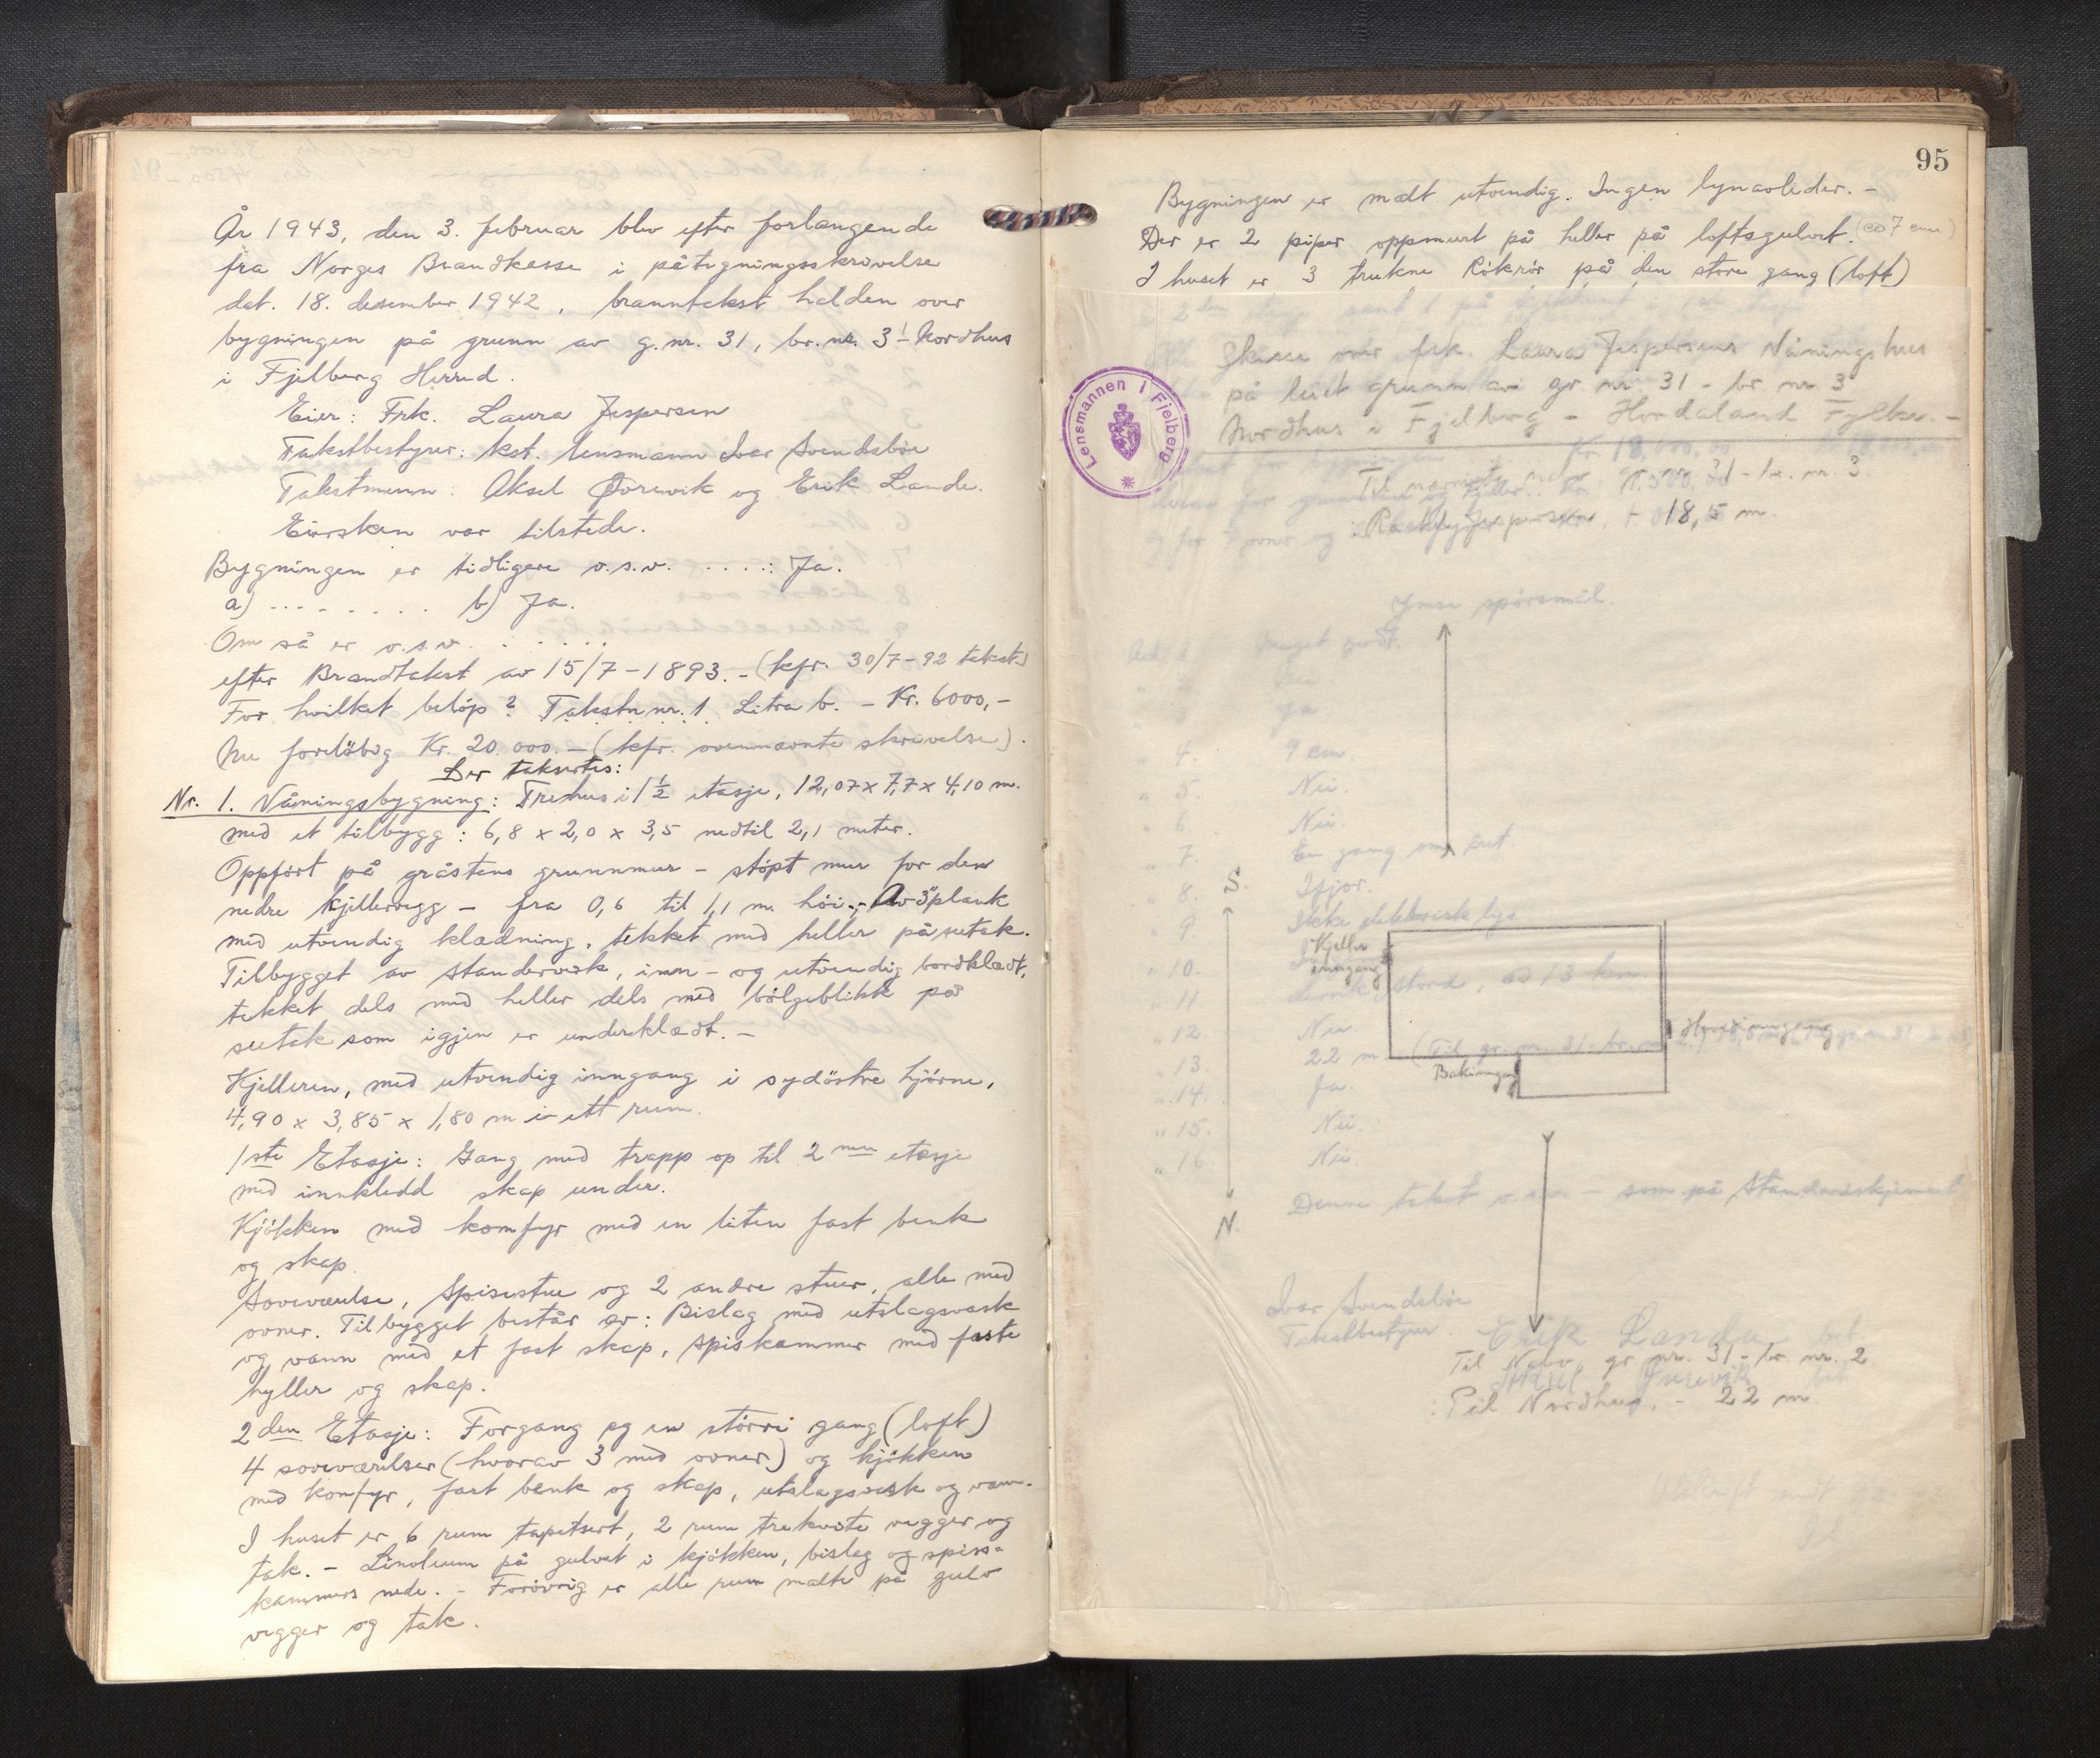 År 1943, den 3. februar blev efter forlangende
fra Norges Brandkasse i påtegningsskrivelse
dat. 18. desember 1942, branntakst holden over
bygningen på grunn av g.nr. 31, br.nr. 3 Nordhus
i Fjelberg Herred.
Eier: Frk. Laura Jespersen
Takstbestyrer: kst. lensmann Ivar Svendsbøe
Takstmenn: Aksel Øvrevik og Erik Lande.
Eiersken var tilstede.
Bygningen er tidligere o.s.v. ....: Ja.
a) ........ b) Ja.
Om så er o.s.v. . . . . .
efter Brandtakst av 15/7-1893. - (kfr. 30/7-92 takst.)
For hvilket beløp? Takstn nr. 1 Litra b. - Kr. 6000,-
Nu foreløbig Kr. 20.000.- (kfr. ovennævnte skrivelse).
Der taksertes:
Nr. 1. Våningsbygning: Trehus i 1½ etasje, 12,07 x 7,7 x 4,10 m.
med et tilbygg: 6,8 x 2,0 x 3,5 nedtil 2,1 meter.
Oppført på gråstens grunnmur - støpt mur for den
nedre kjellervegg - fra 0,6 til 1,1 m. høi. - Av 3" plank
med utvendig klædning, tekket med heller på sutak.
Tilbygget av standerverk, inn- og utvendig bordklædt,
tekket dels med heller dels med bølgeblikk på
sutak som igjen er underklædt. -
Kjelleren, med utvendig inngang i sydøstre hjørne,
4,90 x 3,85 x 1,80 m i ett rum.
1ste Etasje: Gang med trapp op til 2nen etasje
med innkledd skap under.
Kjøkken med komfyr med en liten fast benk
og skap.
Soveværelse, Spisestue og 2 andre stuer, alle med
ovner. Tilbygget består av: Bislag med utslagsvask
og vann med et fast skap, spiskammer med faste
hyller og skap.
2den Etasje: Forgang og en større gang (loft)
4 soveværelser (hvorav 3 med ovner) og kjøkken
med komfyr, fast benk og skap, utslagsvask og vann.
I huset er 6 rum tapetsert, 2 rum trekvite vegger og
tak. - Linoleum på gulvet i kjøkken, bislag og spiss-
kammers nede. - Forøvrig er alle rum malte på gulv
vegger og tak.
95
Bygningen er malt utvendig. Ingen lynavleder. -
Der er 2 piper oppmurt på heller på loftsgulvet. (ca 7 cm)
I huset er 3 trukne Røkrør på den store gang (loft)
Skisse over frk. Laura Jespersens Våningshus
på leiet grunn av gr. nr. 31 - br. nr. 3
Nordhus i Fjelberg - Hordaland Fylke. -
Lensmannen i Fjelberg
Til nærmeste nabo 31 - br. nr. 3
Jespersen 18,5 m.
Ymse spørsmål.
Meget godt.
Ja
" 4. 9 cm
" 5. Nei.
" 6. Nei.
" 7. En gang om året.
S.
" 8. Ifjor.
" 9. Ikke elektrisk lys.
Kjeller
inngang
" 10.
11. Stord, ca 13 km.
" 12. Nei.
Hovedinngang
" 13. 22 m (Til gr. nr. 31 - br. nr.
Bakinngang
" 14. Ja.
" 15. Nei.
" 16 Nei.
Denne takst o.s.v. - som på Standardskjemaet
N.
Ivar Svendsbøe
Takstbestyrer
Erik Lande
Til Nabo, gr. nr. 31 - br. nr. 2
Aksel Øvrevik
Nordhus, - 22 m.